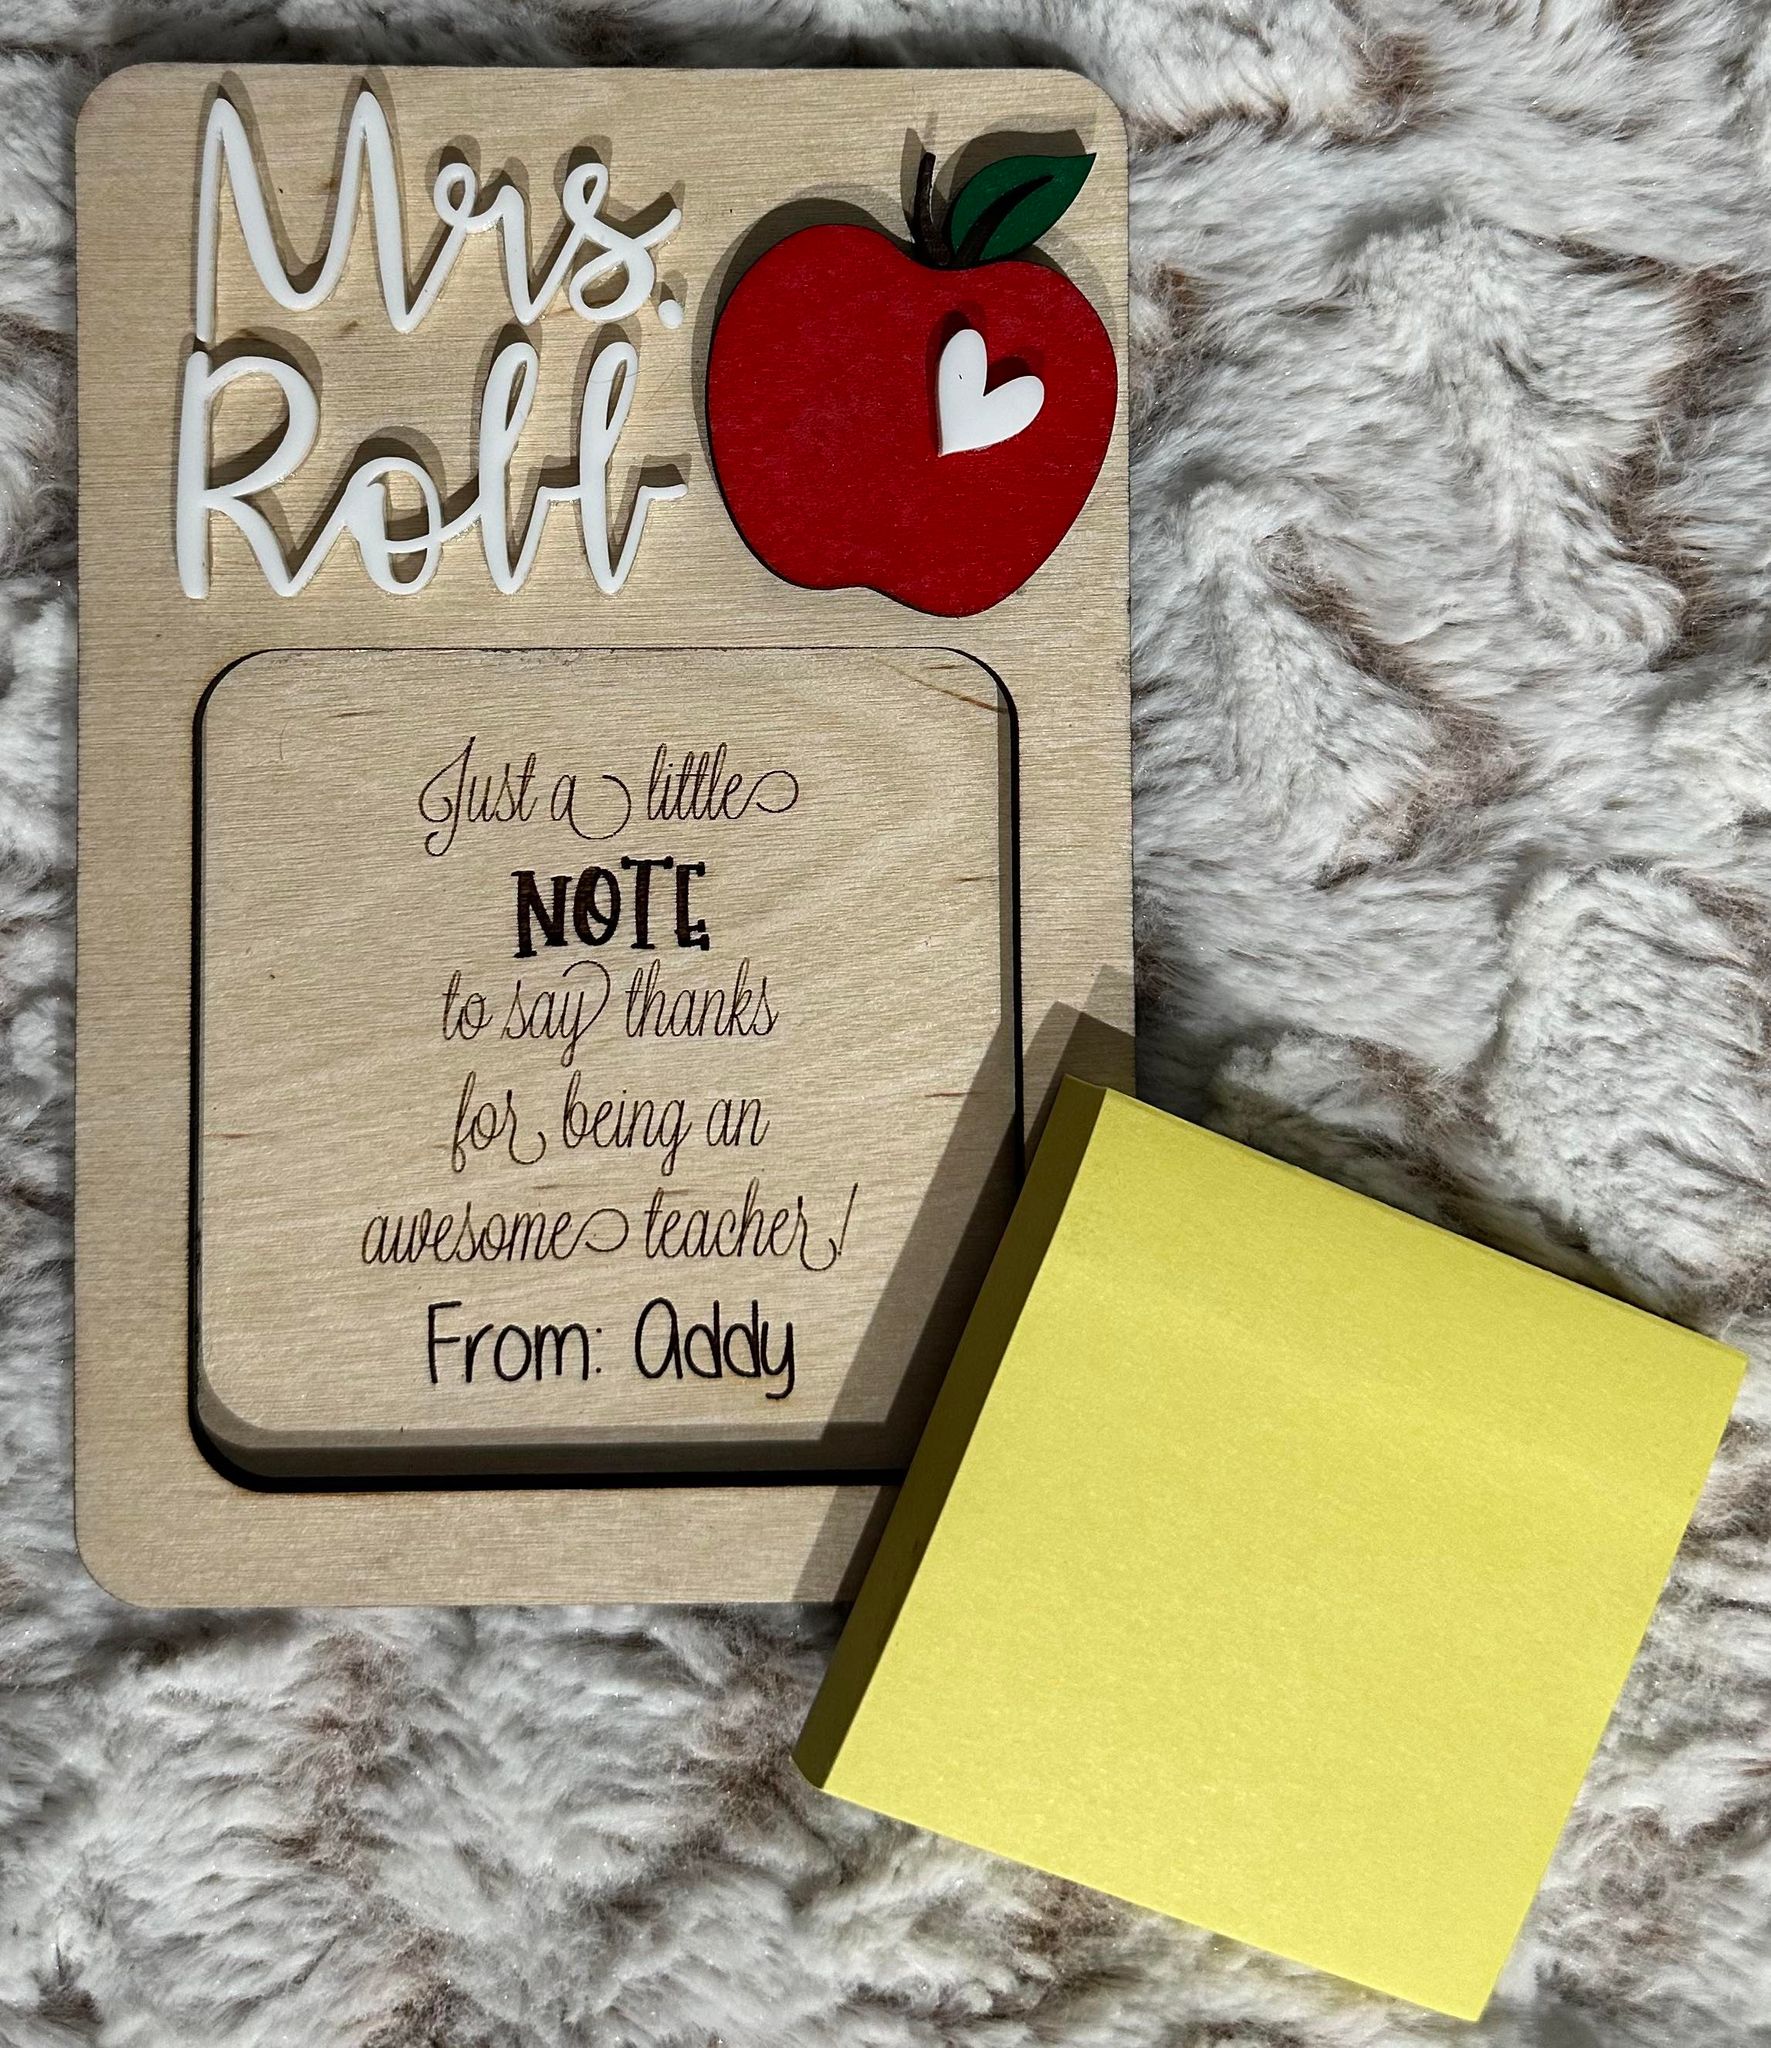 Mrs.
Robb
Just a little
NOTE
to say thanks
for being an
awesome teacher!
From: Addy